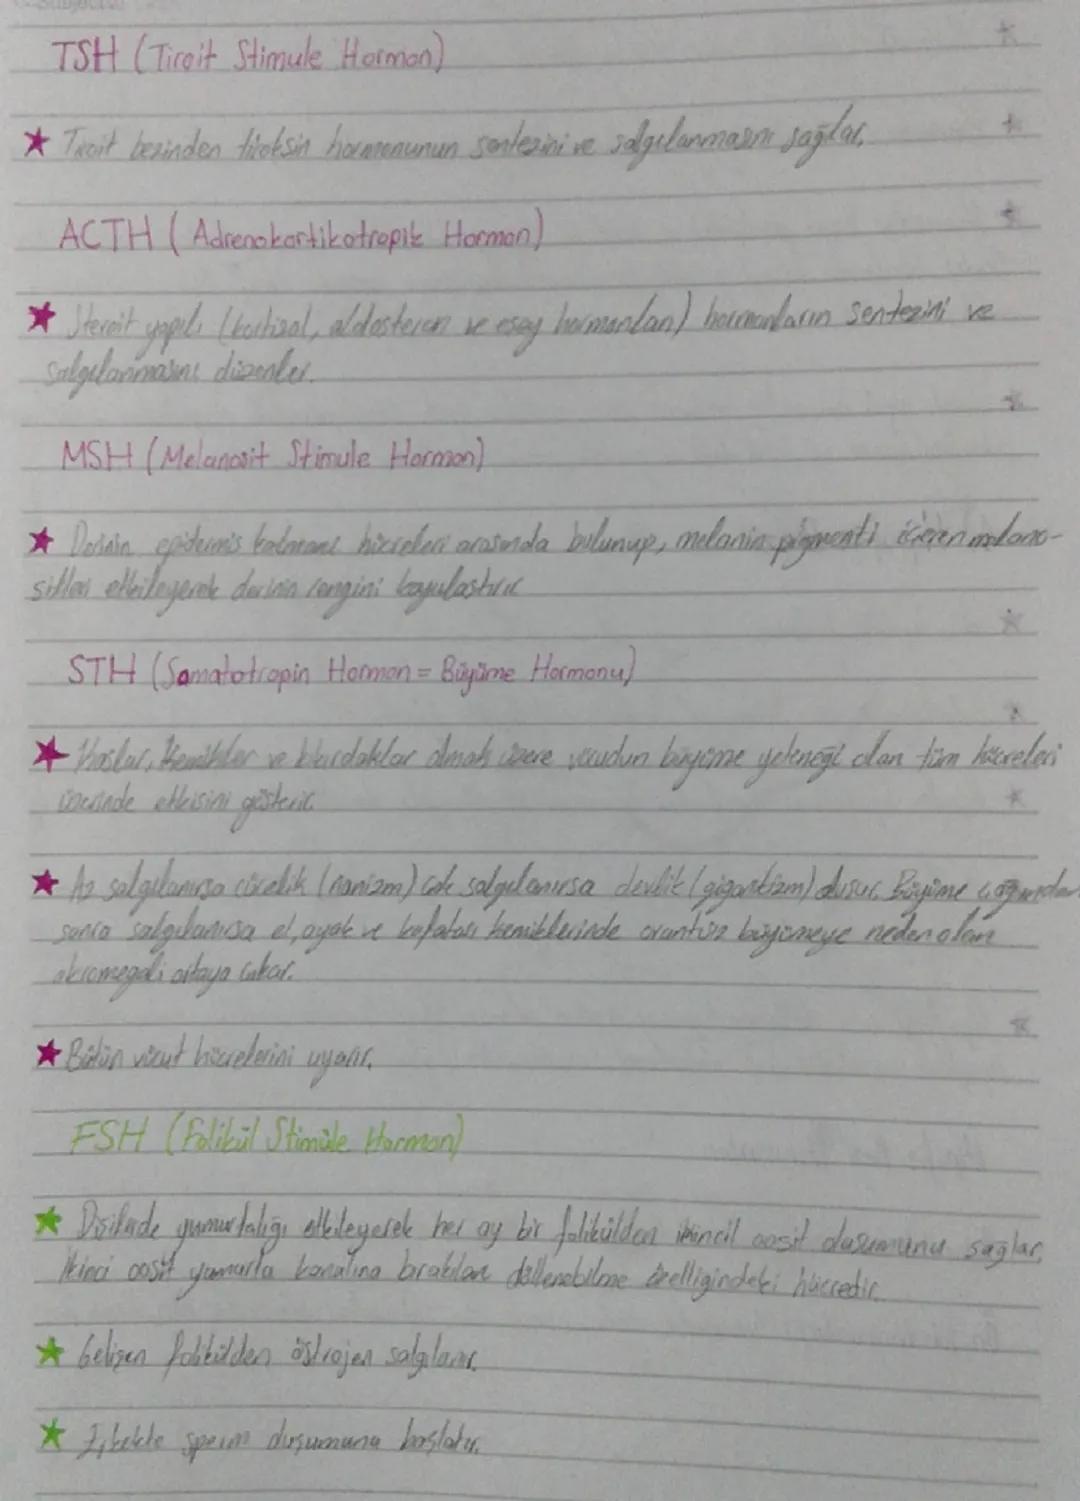 TSH (Tiroit Stimule Hormon)
Tiroit bezinden tiroksin hormonunun sentezini ve salgılanmasını sağlar.
ACTH (Adrenokortikotropik Hormon)
Steroit yapılı (kortizol, aldosteron ve eşey hormonları) hormonların sentezini ve
salgılanmasını düzenler.
MSH (Melanosit Stimule Hormon)
Derinin epidermis katmanı hücreleri arasında bulunup, melanin pigmenti içeren melano-
sitleri etkileyerek derinin rengini koyulaştırır
STH (Somatotropin Hormon = Büyüme Hormonu)
Kaslar, Kemikler ve kıkırdaklar olmak üzere vücudun büyüme yeteneği olan tüm hücreleri
üzerinde etkisini gösterir.
Az salgılanırsa cücelik (nanizm) çok salgılanırsa devlik (gigantizm) oluşur. Büyüme çağından
sonra salgılanırsa el, ayak ve kafatası kemiklerinde orantısız büyümeye neden olan
akromegali ortaya çıkar.
Bütün vücut hücrelerini uyarır.
FSH (Folikül Stimüle Hormon)
Dişilerde yumurtalığı etkileyerek her ay bir folikülden ikincil oosit oluşumunu sağlar.
İkinci oosit yumurta kanalına bırakılan döllenebilme özelliğindeki hücredir.
Gelişen folikülden östrojen salgılanır.
Erkekte sperm oluşumunu başlatır.